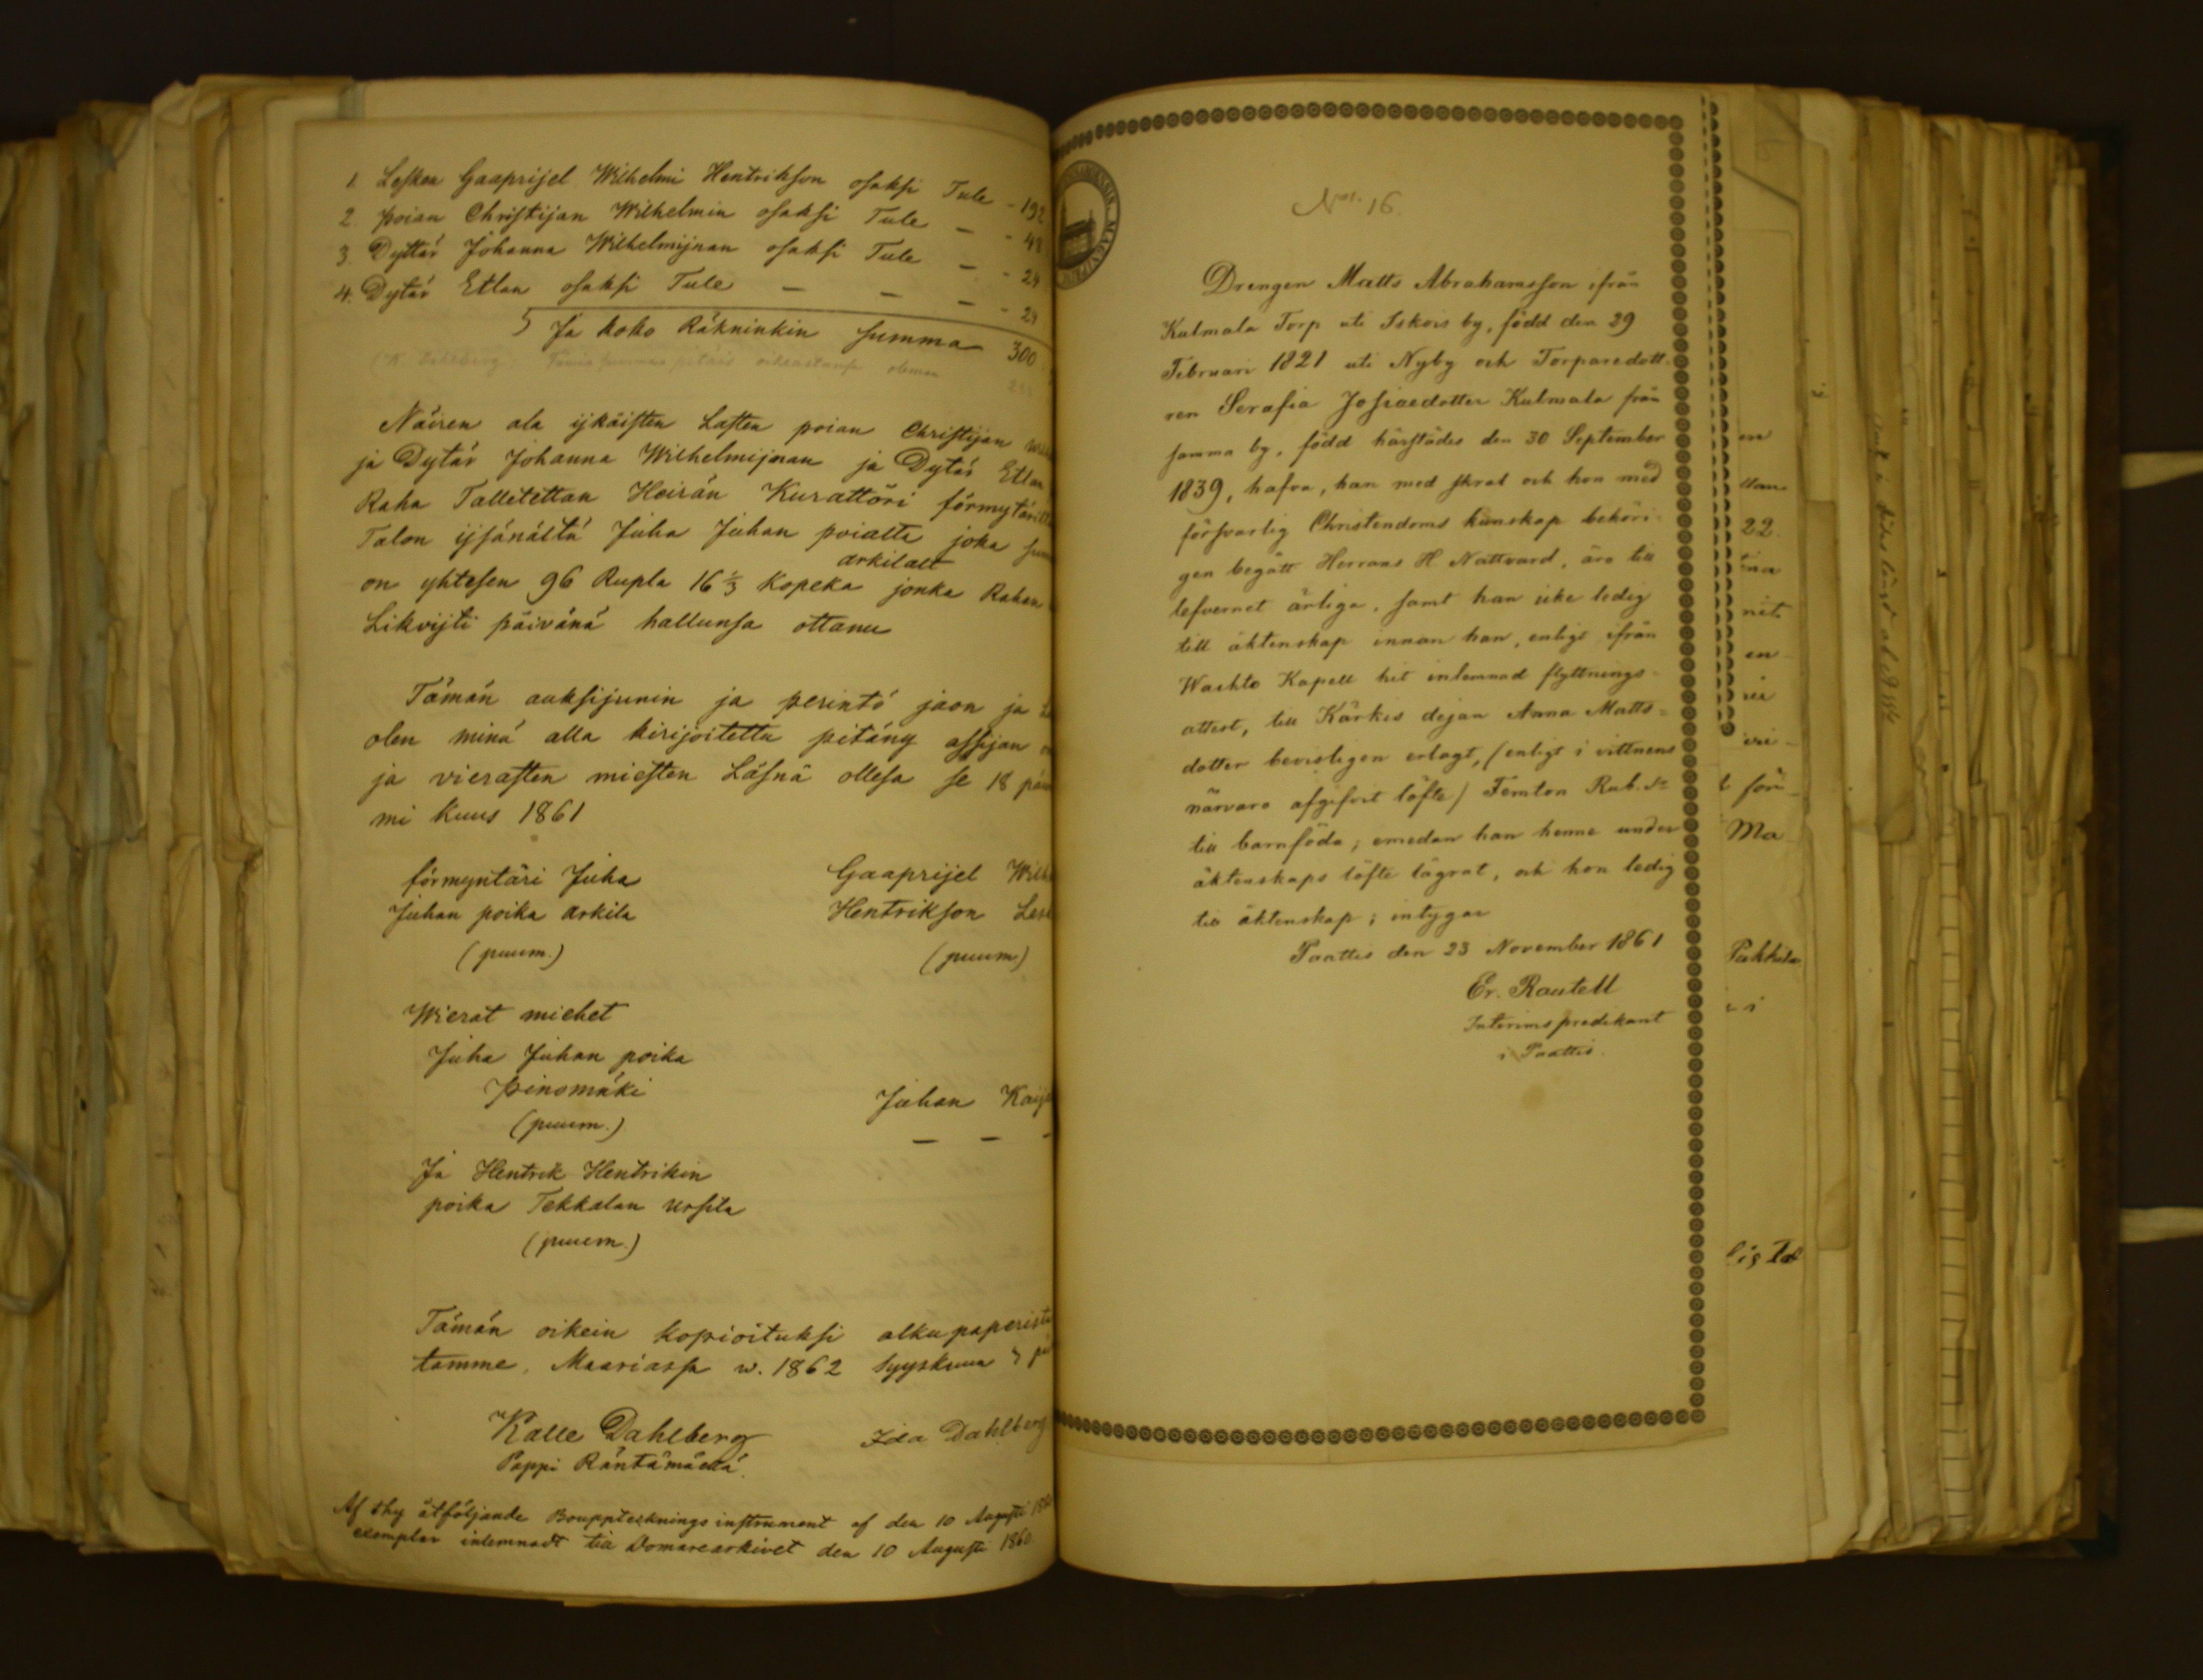 1. Lesken Gaaprijel Wilhelmi Hentrikson osaksi Tule - 192
2. poian Christijan Wilhelmin osaksi Tule — - 48
3. Dyttär Johanna Wilhelmijnan osaksi Tule — - 24
4. Dytär Etlan osaksi Tule — — — - 24
Ja koko Räkninkin summa 300
(K. Dahlberg. Tämä summa pitäis oikeastansa oleman
Näiren ala ijkäisten Lasten poian Christijan
ja Dytär Johanna Wilhelmijnan ja Dytär Etlan
Raha Talletettan Heirän Kurattöri förmytäril
Talon ijsänältä Juha Juhan poialta joka
arkilalt
on yhtesen 96 Rupla 16⅓ Kopeka jonka Rahan
Likvijti päivänä hallunsa ottanu
Tämän auksijunin ja perintö jaon ja
olen minä alla kirijoitettu pitäny assijan
ja vierasten miesten Läsnä ollesa se 18
mi kuus 1861
förmyntäri Juha
Juhan poika arkila
(puum.)
Gaaprijel Wilh
Hentrikson Lesk
(puum)
Wierat miehet
Juha Juhan poika
Pinomäki
(puum.)
Juhan Kaij
— — -
Ja Hentrik Hentrikin
poika Tekkalan ursila
(puum.)
Tämän oikein kopioituksi alkupaperista
tamme, Maariassa w. 1862 Syyskuun 5
Kalle Dahlberg
Pappi Räntämäellä.
Ida Dahlberg
Af thy åtföljande Bouppteckningsinstrument af den 10 Augusti
exemplar inlemnadt till Domarearkivet den 10 Augusti 1860
No. 16.
Drengen Matts Abrahamsson ifrån
Kulmala Torp uti Iskois by, född den 29
Februari 1821 uti Nyby och Torparedott-
ren Serafia Josiaedotter Kulmala från
samma by, född härstädes den 30 September
1839, hafva, han med skral och hon med
försvarlig Christendoms kunskap behöri-
gen begått Herrans H. Nattvard, äro till
lefvernet ärliga, samt han icke ledig
till äktenskap innan han, enligt ifrån
Wachto Kapell hit inlemnad flyttnings-
attest, till Kärkis dejan Anna Matts=
dotter bevisligen erlagt, (enligt i vittnens
närvaro afgifvit löfte) Femton Rub. Sr
till barnföda; emedan han henne under
äktenskaps löfte lägrat, och hon ledig
till äktenskap; intygar
Paattis den 23 November 1861
Er. Rautell
Interimspredikant
i Paattis.
22.
för
Ma